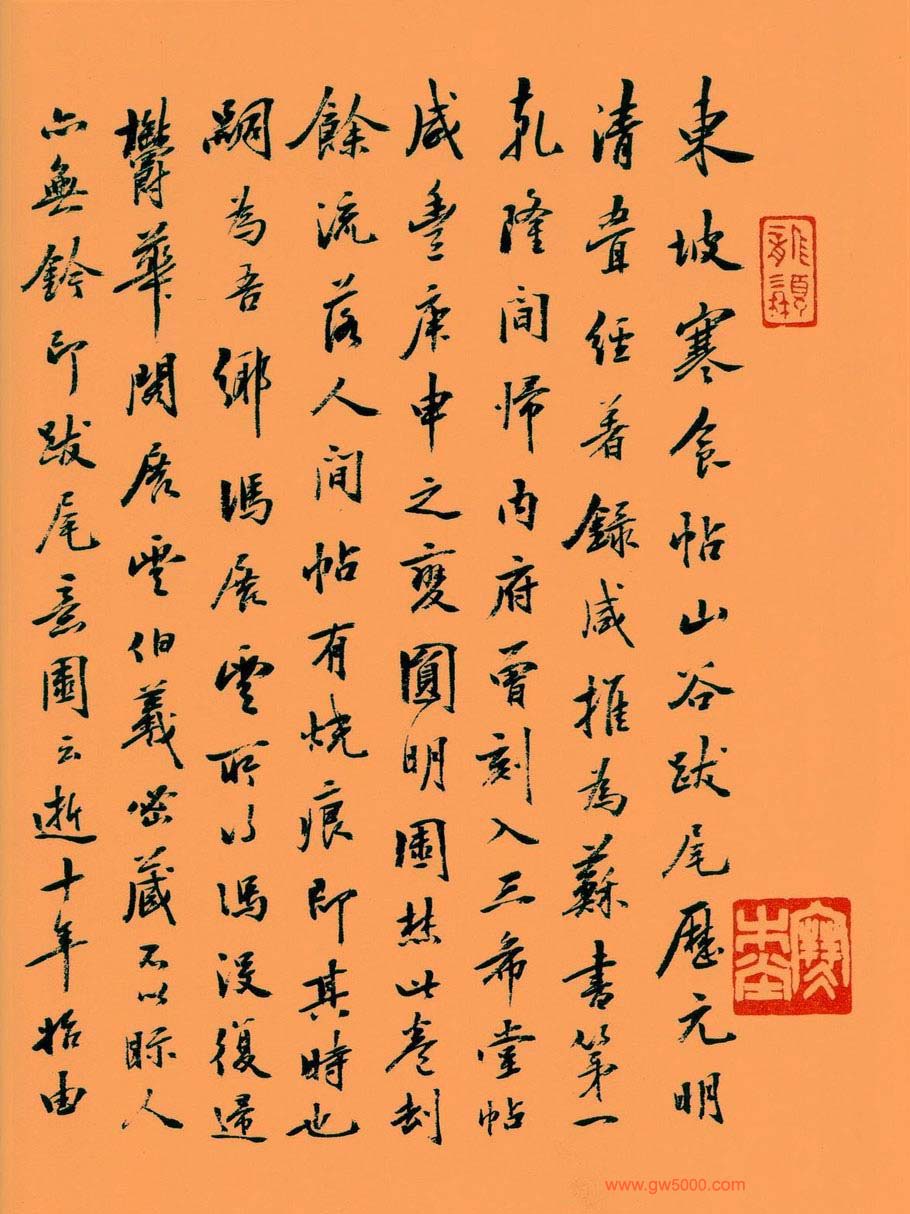 東坡寒食帖山谷跋尾歷元明
清疊經著錄咸推為蘇書第一
乾隆間歸內府曾刻入三希堂帖
咸豐庚申之變圓明園焚此卷劫
餘流落人間帖有燒痕即其時也
嗣為吾鄉馮展雲所得馮沒復歸
鬱華閣展雲伯羲密藏不以眎人
亦無鈐印跋尾意園云逝十年始由
www.gw5000.com